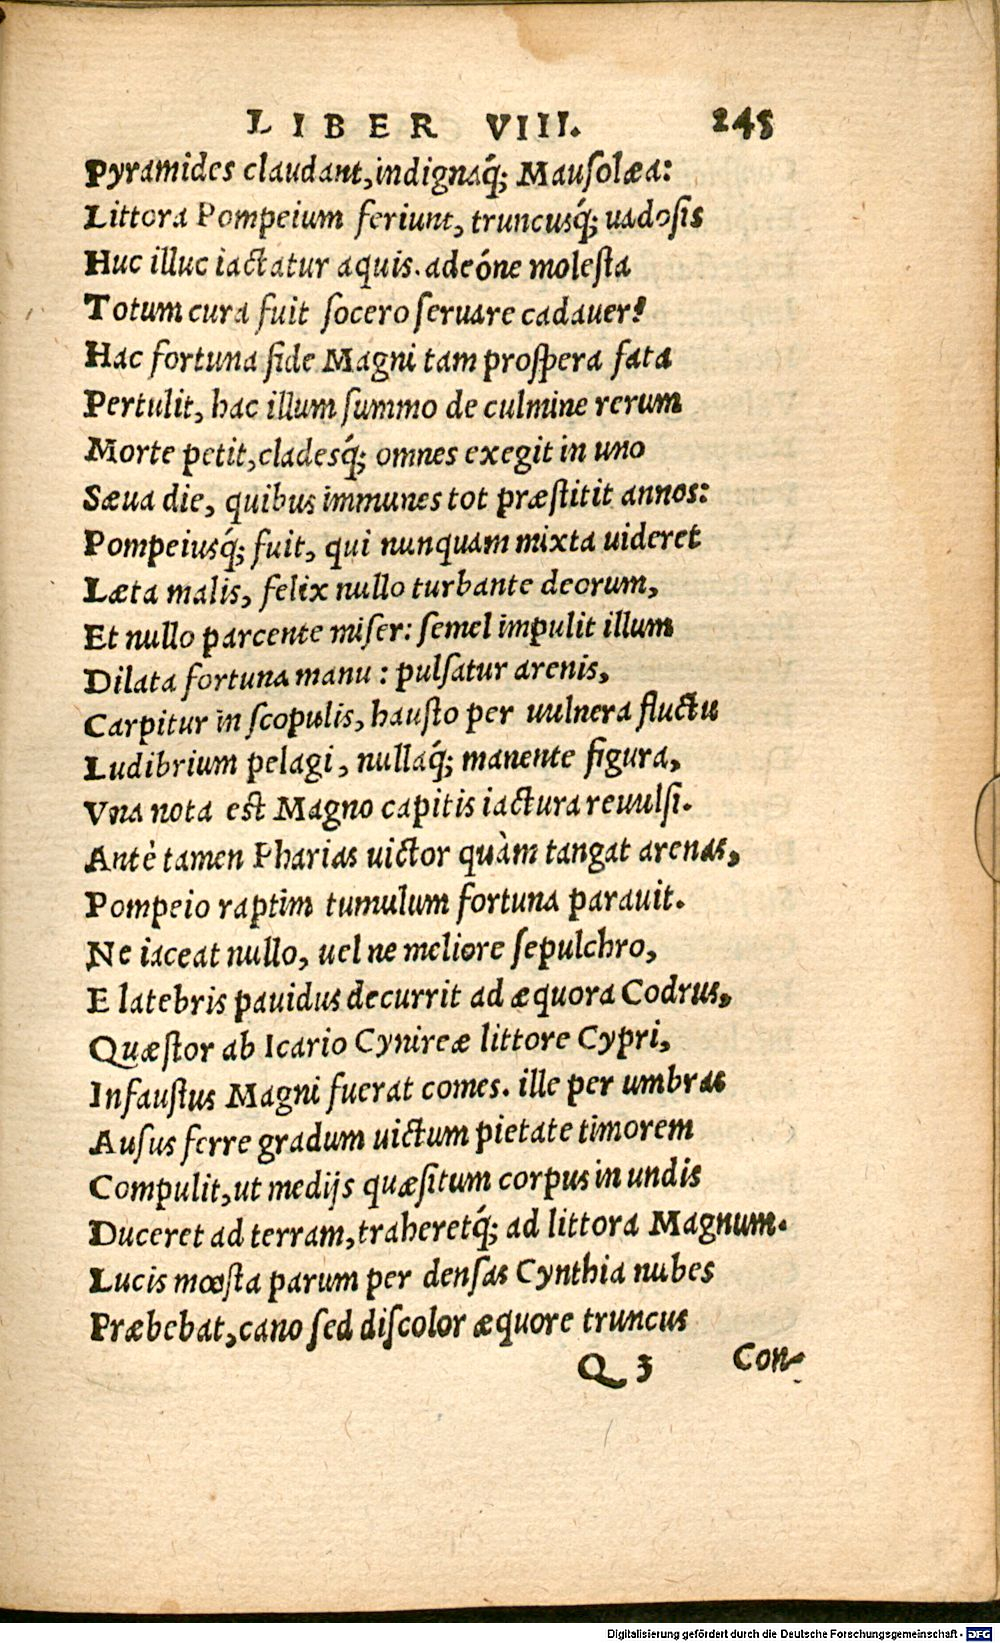 LIBER VIII. 245
Pyramides claudant, indignaq́; Mausolæa:
Littora Pompeium feriunt, truncusq́; uadosis
Huc illuc iactatur aquis. adeóne molesta
Totum cura fuit socero seruare cadauer?
Hac fortuna fide Magni tam prospera fata
Pertulit, hac illum summo de culmine rerum
Morte petit, cladesq́; omnes exegit in uno
Sæua die, quibus immunes tot præstitit annos:
Pompeiusq́; fuit, qui nunquam mixta uideret
Læta malis, felix nullo turbante deorum,
Et nullo parcente miser: semel impulit illum
Dilata fortuna manu: pulsatur arenis,
Carpitur in scopulis, hausto per uulnera fluctu
Ludibrium pelagi, nullaq́; manente figura,
Vna nota est Magno capitis iactura reuulsi.
Antè tamen Pharias uictor quàm tangat arenas,
Pompeio raptim tumulum fortuna parauit.
Ne iaceat nullo, uel ne meliore sepulchro,
E latebris pauidus decurrit ad æquora Codrus,
Quæstor ab Icario Cynireæ littore Cypri,
Infaustus Magni fuerat comes. ille per umbras
Ausus ferre gradum uictum pietate timorem
Compulit, ut medijs quæsitum corpus in undis
Duceret ad terram, traheretq́; ad littora Magnum.
Lucis mœsta parum per densas Cynthia nubes
Præbebat, cano sed discolor æquore truncus
Q 3 Con-
Digitalisierung gefördert durch die Deutsche Forschungsgemeinschaft - DFG